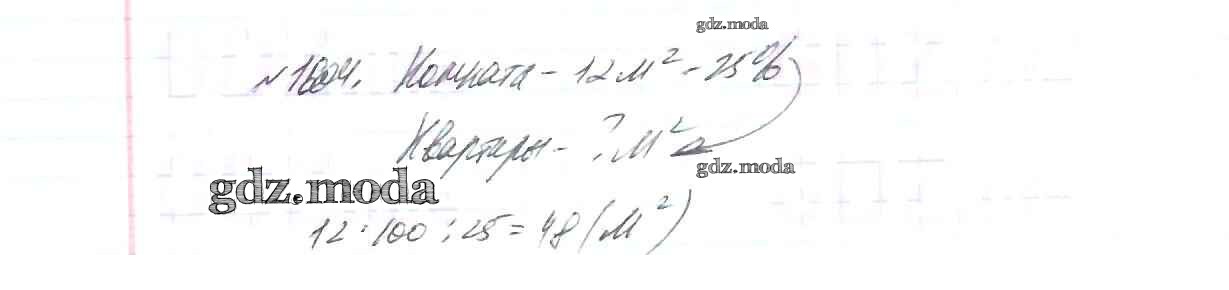 gdz.moda
№1604. Комната - 12 м² - 25%
Квартиры - ? м²
gdz.moda
gdz.moda
12 · 100 : 25 = 48 (м²)